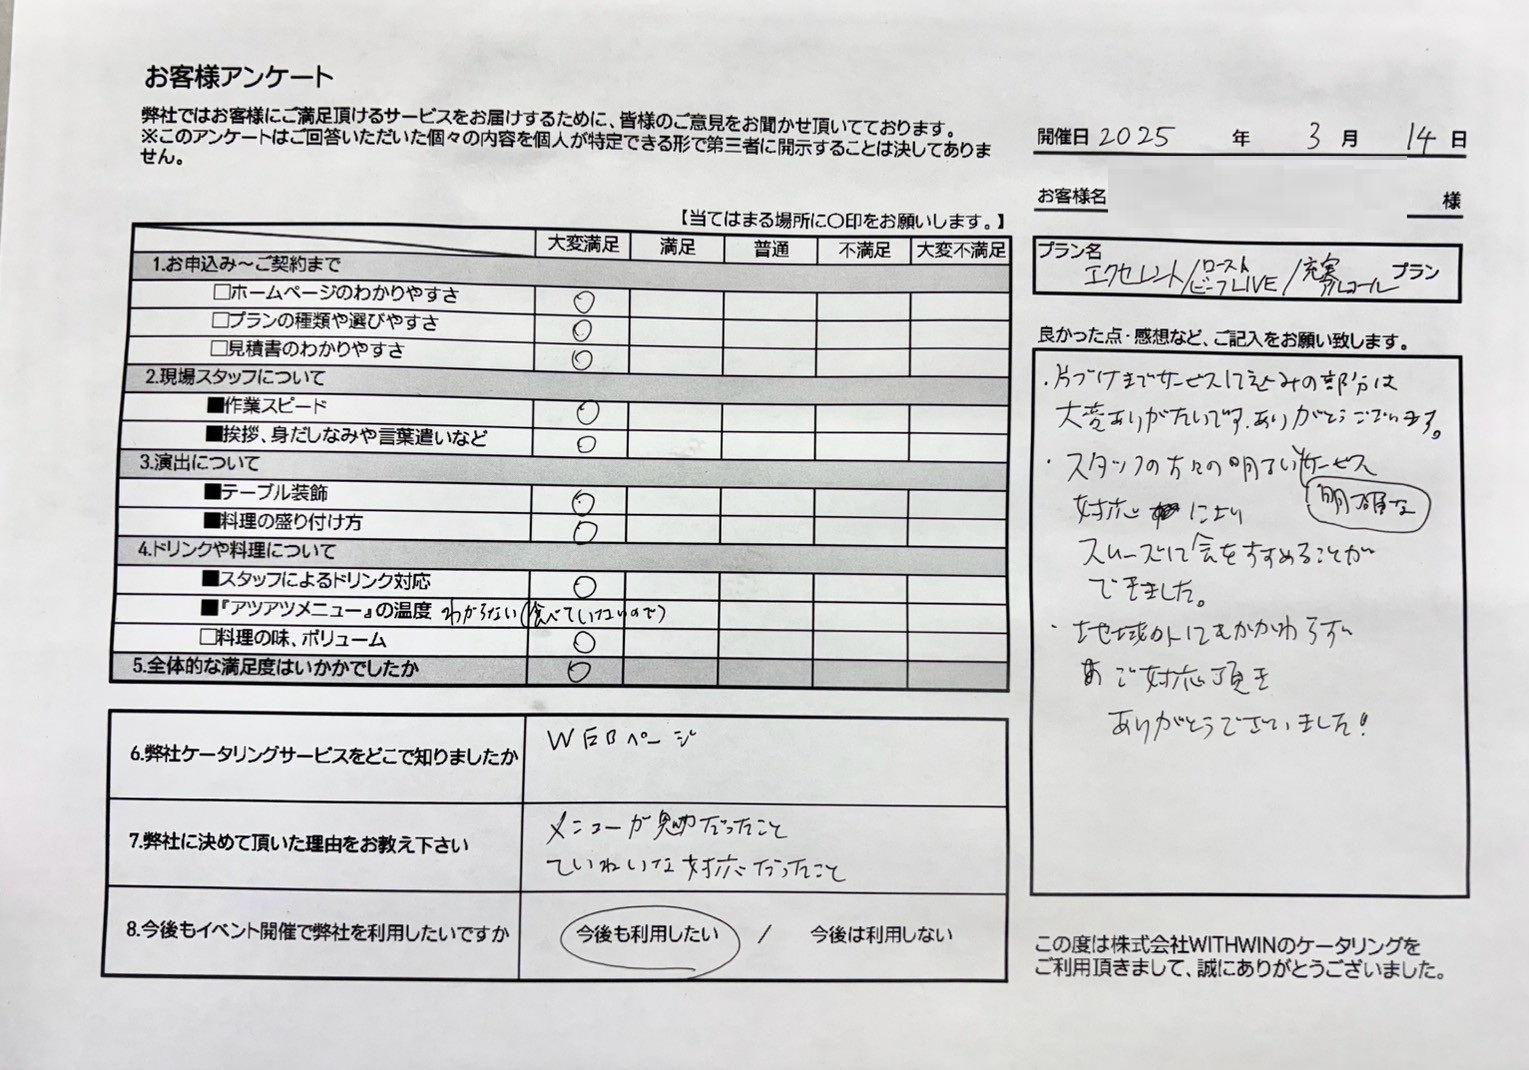 お客様アンケート
弊社ではお客様にご満足頂けるサービスをお届けするために、皆様のご意見をお聞かせ頂いてております。
※このアンケートはご回答いただいた個々の内容を個人が特定できる形で第三者に開示することは決してありま
せん。
【当てはまる場所に〇印をお願いします。】
大変満足 満足 普通 不満足 大変不満足
1.お申込み～ご契約まで
□ホームページのわかりやすさ ○
□プランの種類や選びやすさ ○
□見積書のわかりやすさ ○
2.現場スタッフについて
■作業スピード ○
■挨拶、身だしなみや言葉遣いなど ○
3.演出について
■テーブル装飾 ○
■料理の盛り付け方 ○
4.ドリンクや料理について
■スタッフによるドリンク対応 ○
■『アツアツメニュー』の温度 わからない(食べていないので)
□料理の味、ボリューム ○
5.全体的な満足度はいかかでしたか ○
6.弊社ケータリングサービスをどこで知りましたか WEBページ
7.弊社に決めて頂いた理由をお教え下さい
メニューが魅力だったこと
ていねいな対応だったこと
8.今後もイベント開催で弊社を利用したいですか 今後も利用したい / 今後は利用しない
開催日 2025 年 3 月 14 日
お客様名 様
プラン名
エクセレント/ローストビーフLIVE/充実アルコール プラン
良かった点・感想など、ご記入をお願い致します。
・片づけまでサービスに込みの部分は
大変ありがたいです。ありがとうございます。
・スタッフの方々の明るいサービス
明確な
対応により
スムーズに会をすすめることが
できました。
・地域外にもかかわらず
ご対応頂き
ありがとうございました!
この度は株式会社WITHWINのケータリングを
ご利用頂きまして、誠にありがとうございました。